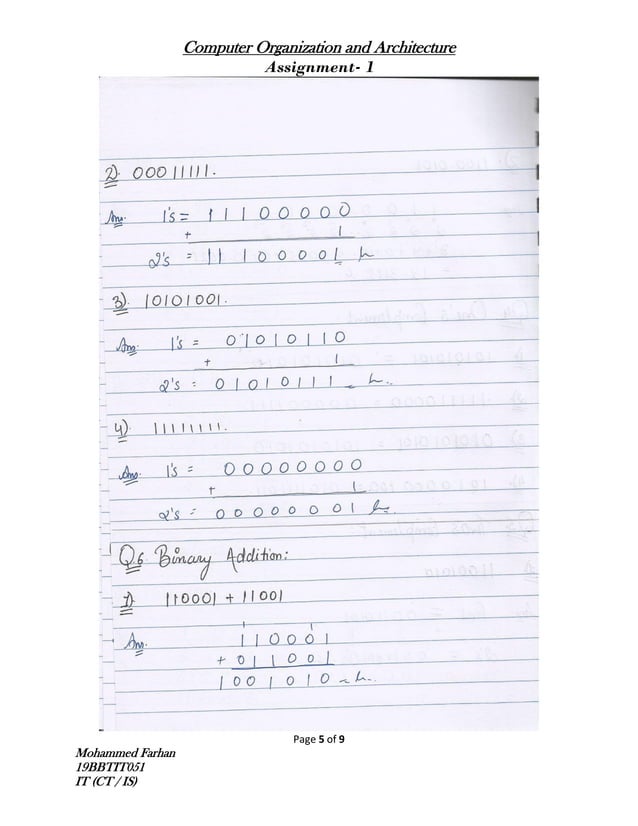 Computer Organization and Architecture
Assignment- 1
2) 00011111.
Ans. 1's = 11100000
+ 1
2's = 11100001
3) 10101001.
Ans. 1's = 01010110
+ 1
2's = 01010111
4) 11111111.
Ans. 1's = 00000000
+ 1
2's = 00000001
Q.6 Binary Addition:
1) 110001 + 11001
1 1
Ans. 110001
+ 011001
1001010
Page 5 of 9
Mohammed Farhan
19BBTIT051
IT (CT / IS)